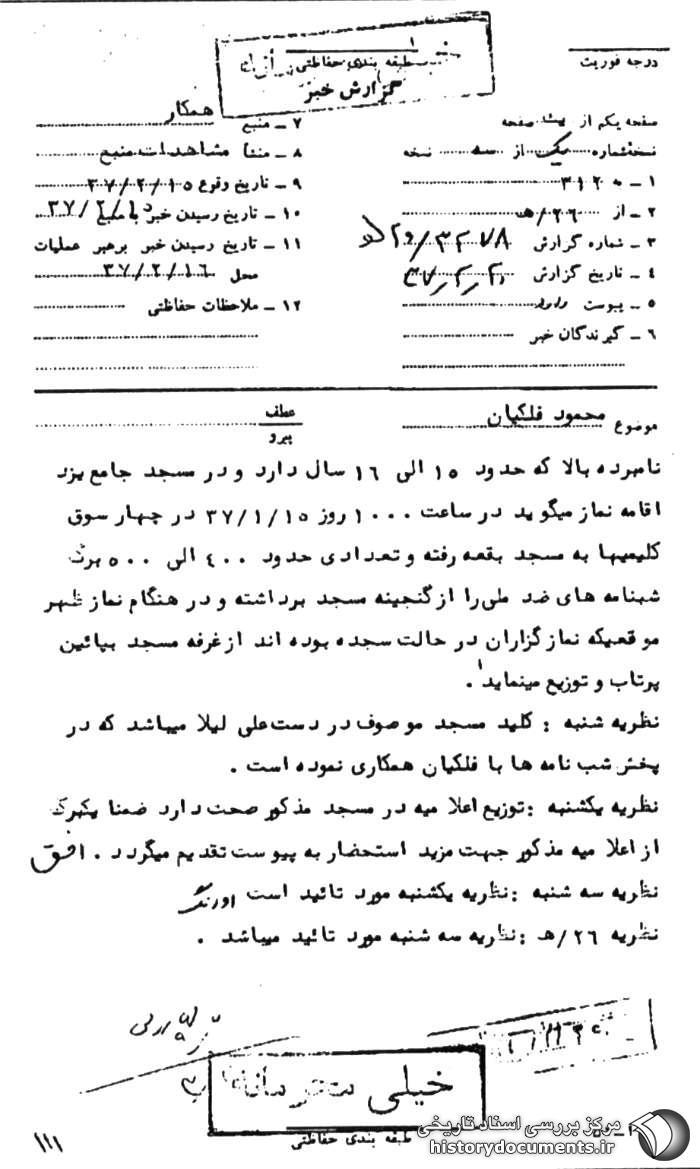 درجه فوریت
طبقه بندی حفاظتی
گزارش خبر
صفحه یکم از یک صفحه
نسخه شماره یک از سه نسخه
۱ ـ به ۳۱۲
۲ ـ از ۲۶/هـ
۳ ـ شماره گزارش
۴ ـ تاریخ گزارش
۵ ـ پیوست دارد
۶ ـ گیرندگان خبر
۷ ـ منبع همکار
۸ ـ منشأ مشاهدات منبع
۹ ـ تاریخ وقوع ۳۷/۲/۱۵
۱۰ ـ تاریخ رسیدن خبر به منبع ۳۷/۲/۱۵
۱۱ ـ تاریخ رسیدن خبر برهبر عملیات
محل ۳۷/۲/۱۶
۱۲ ـ ملاحظات حفاظتی
موضوع محمود فلکیان
عطف
پیرو
نامبرده بالا که حدود ۱۵ الی ۱۶ سال دارد و در مسجد جامع یزد
اقامه نماز میگوید در ساعت ۱۰۰۰ روز ۳۷/۱/۱۵ در چهار سوق
کلیمیها به مسجد بقعه رفته و تعدادی حدود ۴۰۰ الی ۵۰۰ برگ
شبنامه های ضد ملی را از گنجینه مسجد برداشته و در هنگام نماز ظهر
موقعیکه نمازگزاران در حالت سجده بوده اند از غرفه مسجد بپائین
پرتاب و توزیع مینماید .
نظریه شنبه : کلید مسجد موصوف در دست علی لیلا میباشد که در
پخش شب نامه ها با فلکیان همکاری نموده است .
نظریه یکشنبه : توزیع اعلامیه در مسجد مذکور صحت دارد ضمنا یکبرگ
از اعلامیه مذکور جهت مزید استحضار به پیوست تقدیم میگردد . افق
نظریه سه شنبه : نظریه یکشنبه مورد تائید است اورنگ
نظریه ۲۶/هـ : نظریه سه شنبه مورد تائید میباشد .
خیلی محرمانه
طبقه بندی حفاظتی
۱۱۱
مرکز بررسی اسناد تاریخی
historydocuments.ir